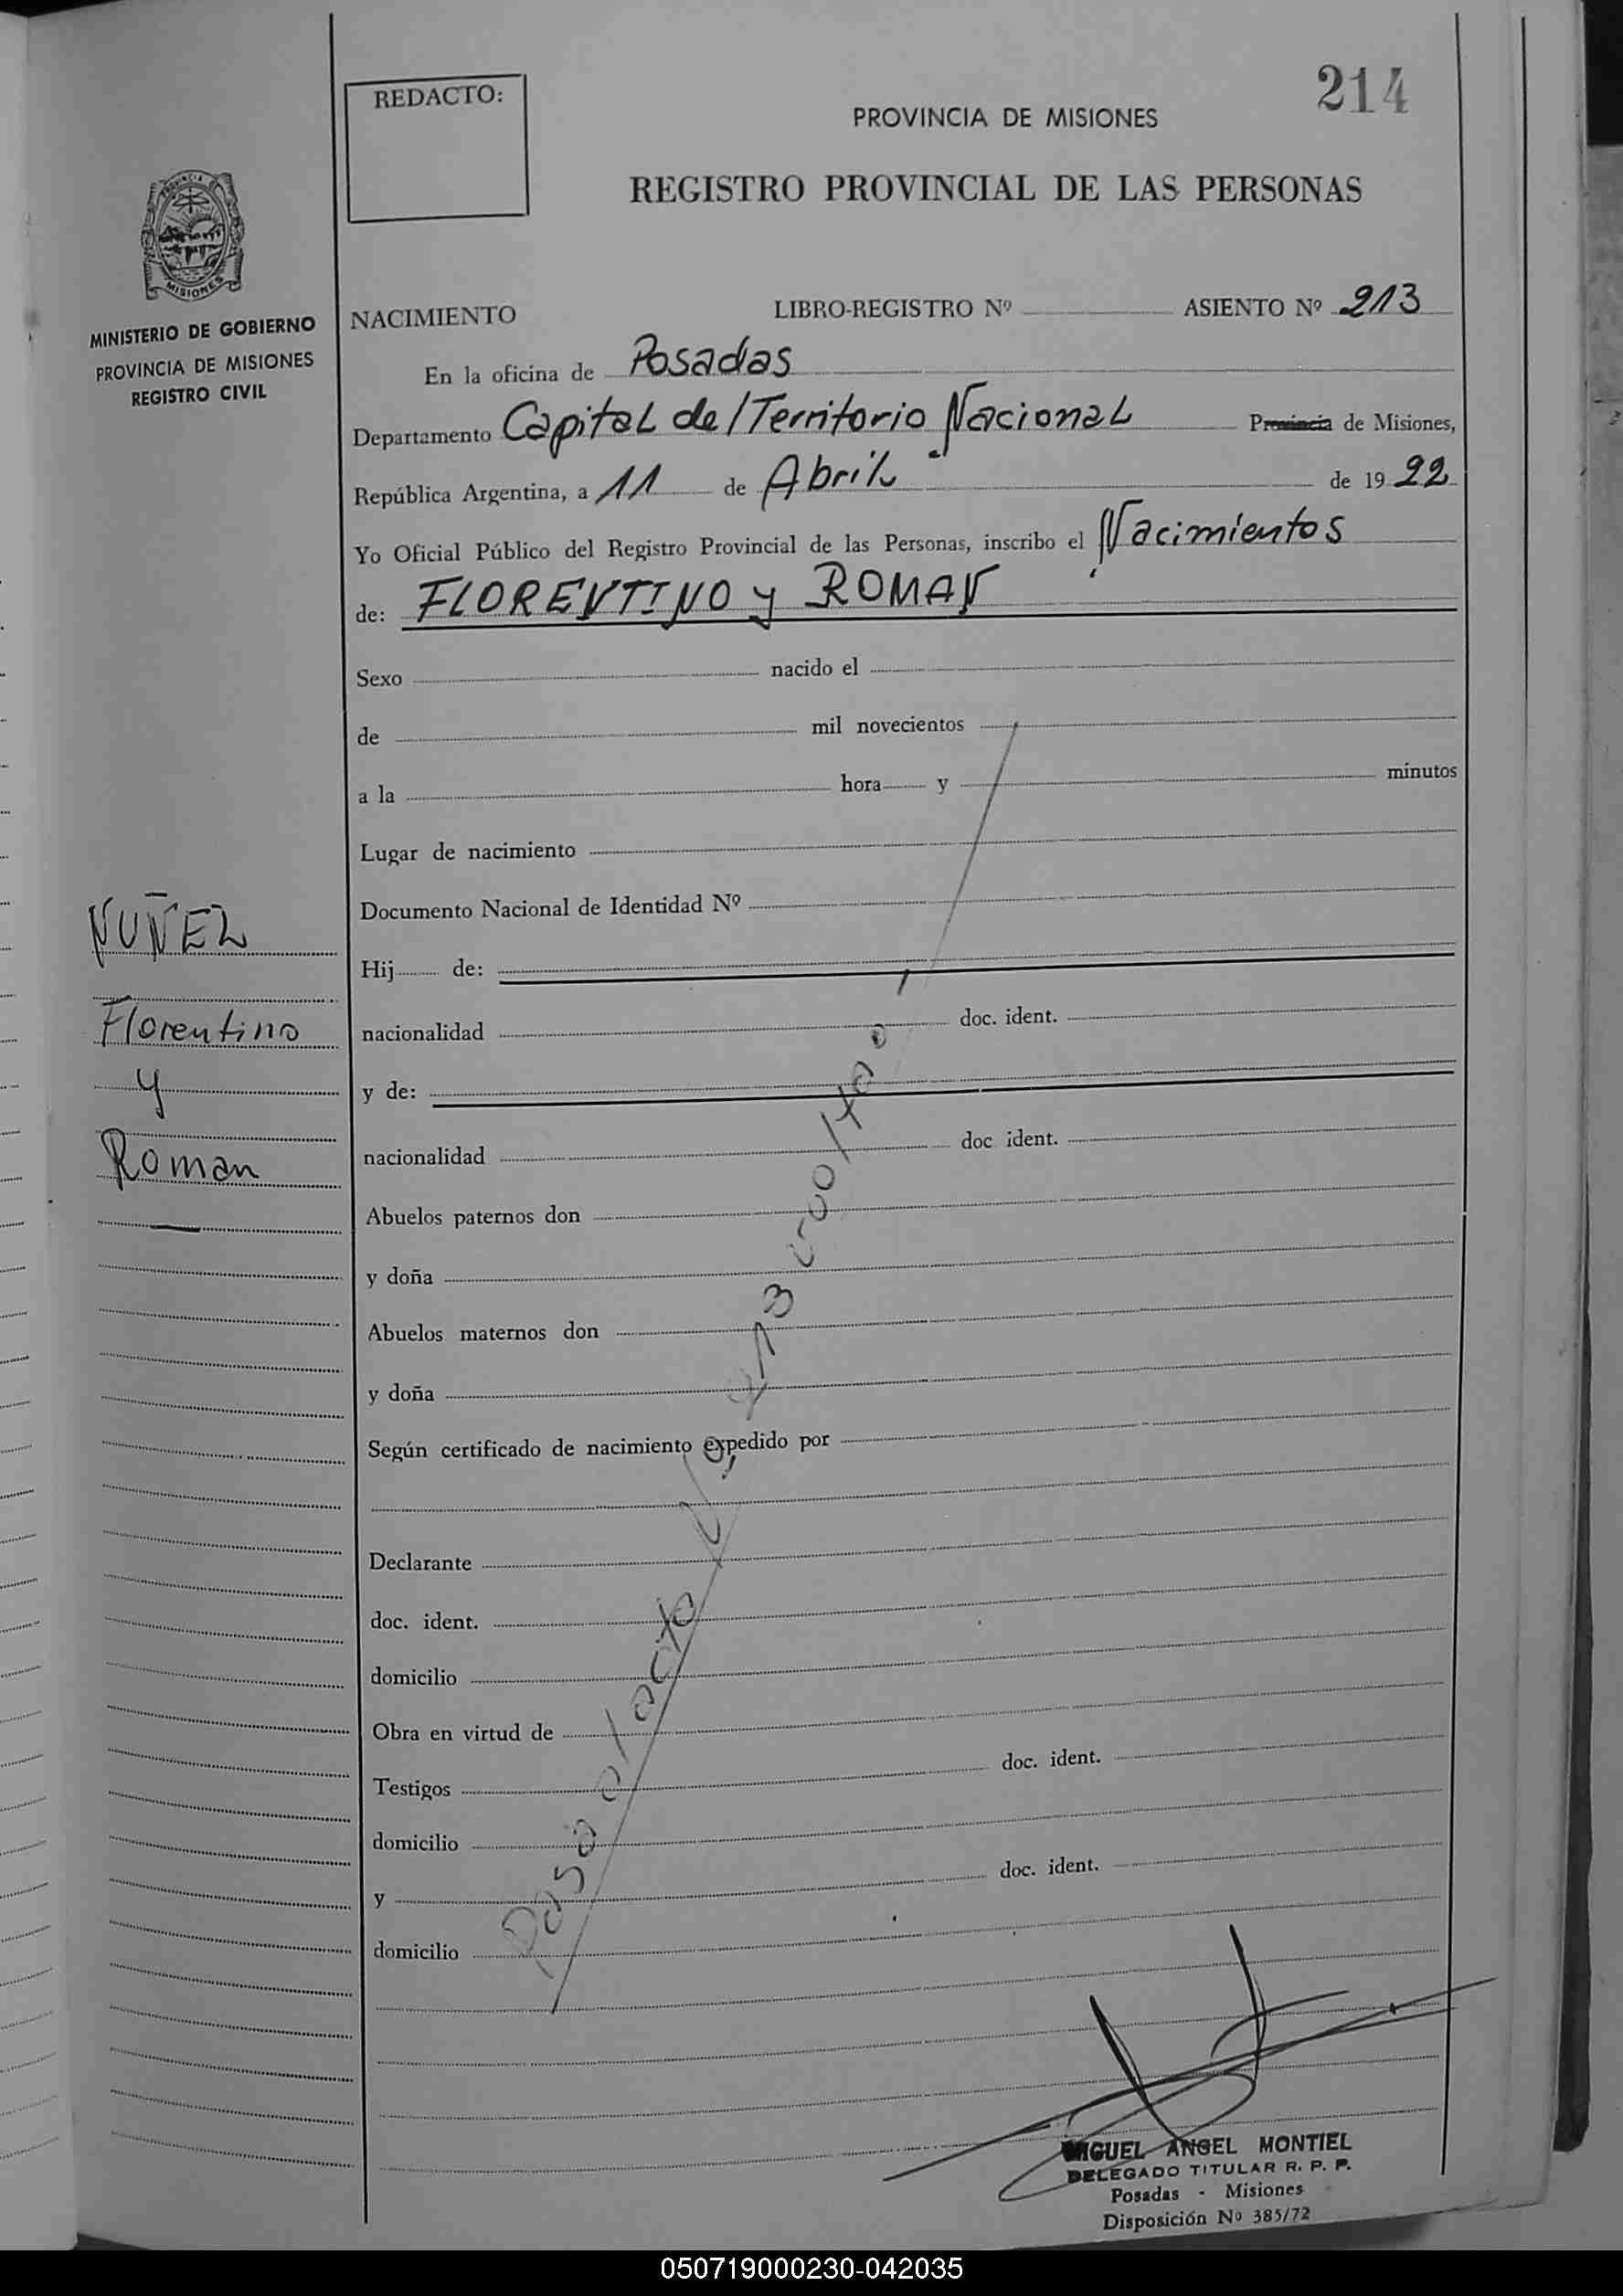 214
REDACTO:
PROVINCIA DE MISIONES
REGISTRO PROVINCIAL DE LAS PERSONAS
PROVINCIA DE
MISIONES
MINISTERIO DE GOBIERNO
PROVINCIA DE MISIONES
REGISTRO CIVIL
NACIMIENTO LIBRO-REGISTRO Nº ASIENTO Nº 213
En la oficina de Posadas
Departamento Capital del Territorio Nacional Provincia de Misiones,
República Argentina, a 11 de Abril de 1922
Yo Oficial Público del Registro Provincial de las Personas, inscribo el Nacimientos
de: FLORENTINO y ROMAN
Sexo nacido el
de mil novecientos
a la hora y minutos
Lugar de nacimiento
Documento Nacional de Identidad Nº
Hij de:
nacionalidad doc. ident.
y de:
nacionalidad doc ident.
Abuelos paternos don
y doña
Abuelos maternos don
y doña
Según certificado de nacimiento expedido por
Declarante
doc. ident.
domicilio
Obra en virtud de
Testigos doc. ident.
domicilio
y doc. ident.
domicilio
NUÑEZ
Florentino
y
Roman
Pasa al acta 213 vuelta
MIGUEL ANGEL MONTIEL
DELEGADO TITULAR R. P. P.
Posadas - Misiones
Disposición Nº 385/72
050719000230-042035